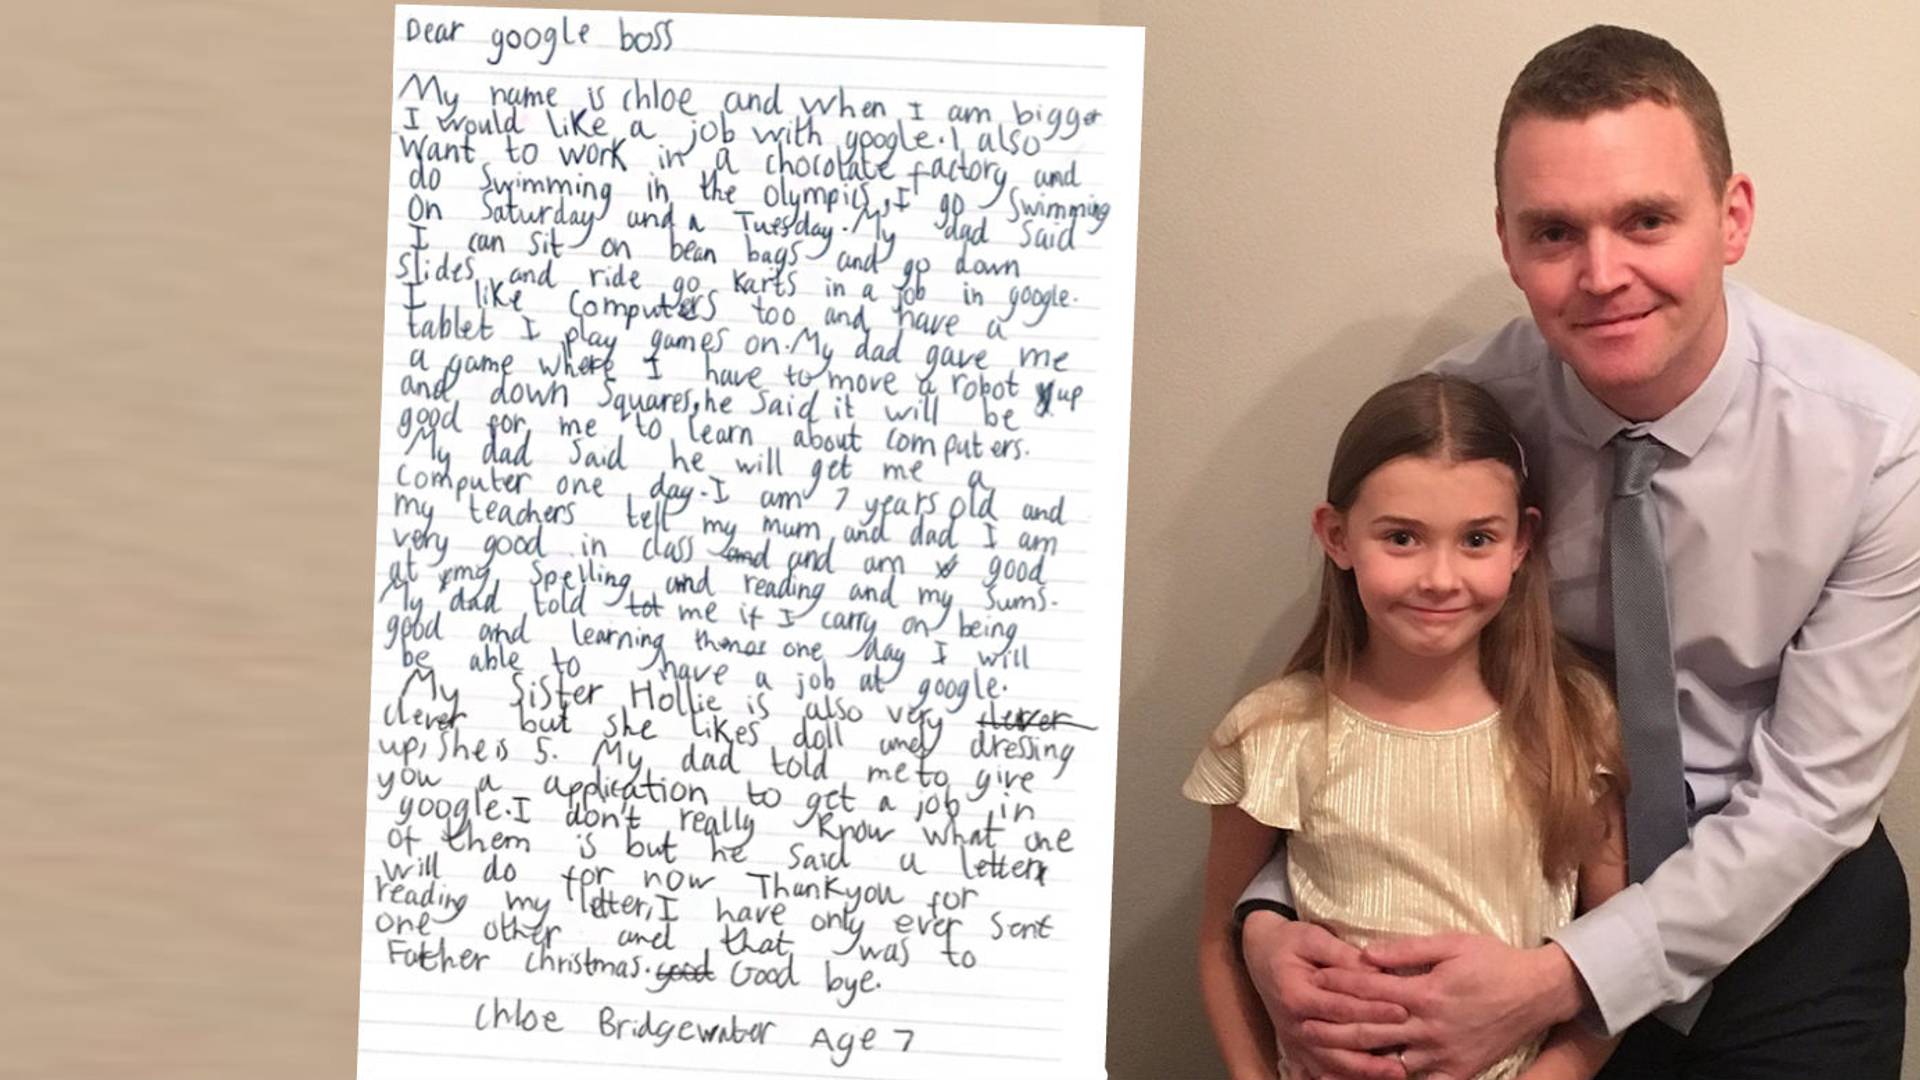 Dear google boss
My name is chloe and when I am bigger
I would like a job with google. I also
want to work in a chocolate factory and
do swimming in the olympics, I go swimming
on Saturday and a Tuesday. My dad said
I can sit on bean bags and go down
slides, and ride go karts in a job in google.
I like computers too and have a
tablet I play games on. My dad gave me
a game where I have to move a robot up
and down squares, he said it will be
good for me to learn about computers.
My dad said he will get me a
computer one day. I am 7 years old and
my teachers tell my mum and dad I am
very good in class and and am good
at my spelling and reading and my sums.
My dad told tot me if I carry on being
good and learning one day I will
be able to have a job at google.
My sister Hollie is also very clever
clever but she likes doll and dressing
up, she is 5. My dad told me to give
you a application to get a job in
google. I don't really know what one
of them is but he said a letter
will do for now Thankyou for
reading my letter, I have only ever sent
one other and that was to
Father christmas. good Good bye.
Chloe Bridgewater Age 7